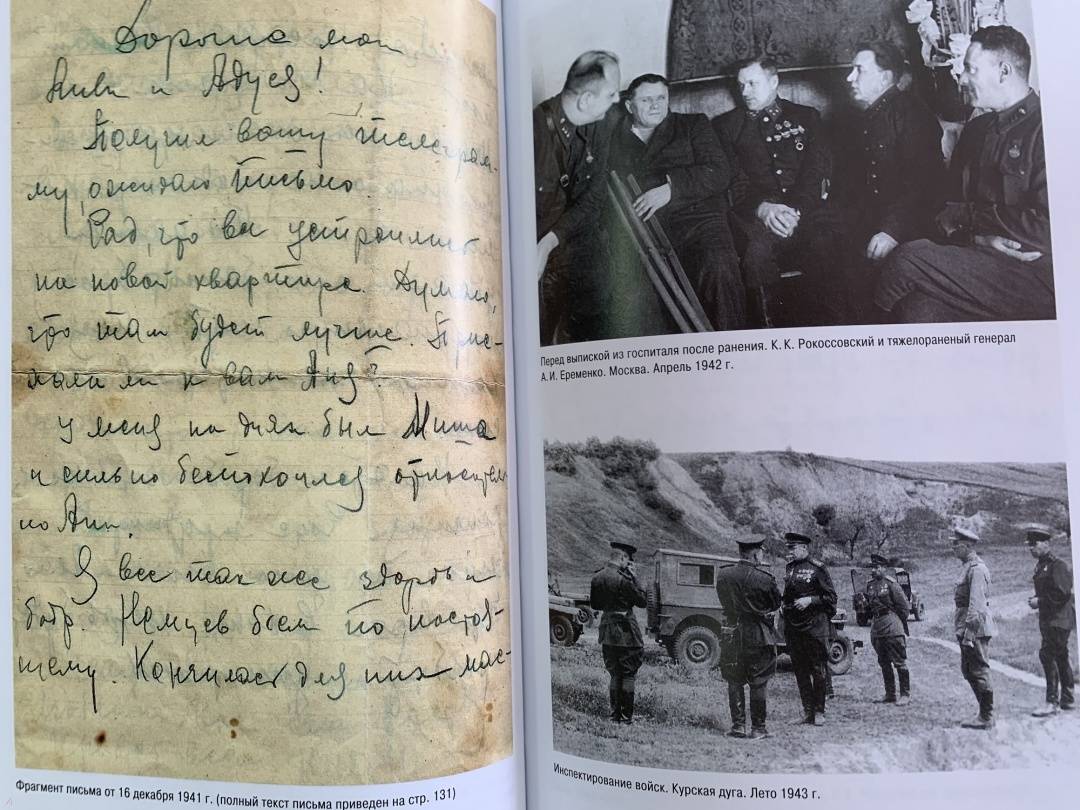 Дорогие мои
и Адуся!
Получил вашу телеграм-
му, ожидаю письмо.
Рад, что вы устроились
на новой квартире. Думаю,
что там будет лучше. Прие-
хала ли к вам Аня?
У меня на днях был Миша
и сильно беспокоился относитель-
но Ани.
Я все так же здоров и
бодр. Немцев бьем по настоя-
щему. Кончилась для них мас-
Фрагмент письма от 16 декабря 1941 г. (полный текст письма приведен на стр. 131)
Перед выпиской из госпиталя после ранения. К. К. Рокоссовский и тяжелораненый генерал
А. И. Еременко. Москва. Апрель 1942 г.
Инспектирование войск. Курская дуга. Лето 1943 г.